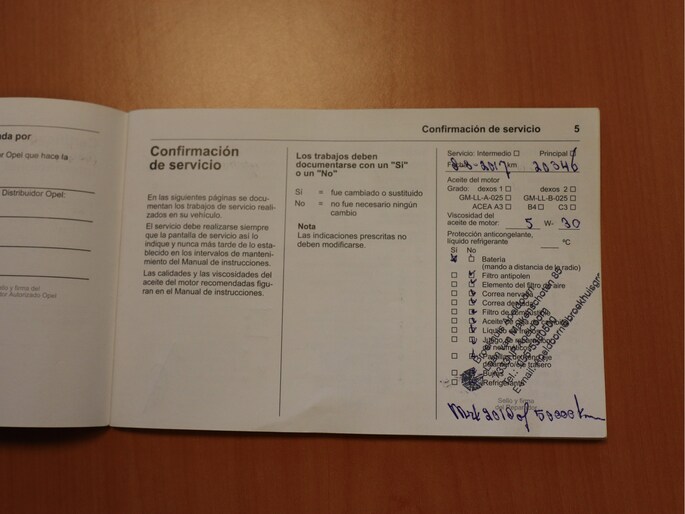 da por
r Opel que hace la
Distribuidor Opel:
ello y firma del
utor Autorizado Opel
Confirmación de servicio 5
Confirmación
de servicio
En las siguientes páginas se docu-
mentan los trabajos de servicio reali-
zados en su vehículo.
El servicio debe realizarse siempre
que la pantalla de servicio así lo
indique y nunca más tarde de lo esta-
blecido en los intervalos de manteni-
miento del Manual de instrucciones.
Las calidades y las viscosidades del
aceite del motor recomendadas figu-
ran en el Manual de instrucciones.
Los trabajos deben
documentarse con un "Sí"
o un "No"
Sí = fue cambiado o sustituido
No = no fue necesario ningún
cambio
Nota
Las indicaciones prescritas no
deben modificarse.
Servicio: Intermedio Principal
8-2017 km 20346
Aceite del motor
Grado: dexos 1 dexos 2
GM-LL-A-025 GM-LL-B-025
ACEA A3 B4 C3
Viscosidad del
aceite de motor: 5 W- 30
Protección anticongelante,
líquido refrigerante °C
Sí No
Batería
(mando a distancia de la radio)
Filtro antipolen
Elemento del filtro de aire
Correa
Correa
Filtro de
Aceite
Líquido
Bujías
Refrigerante
Sello y firma
50000 km